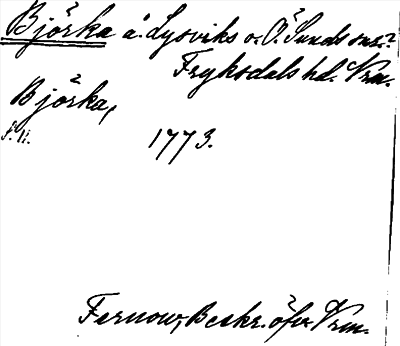 Björka å. Lysviks o. Ö. Sunds snr?
Fryksdals hd. Vrm.
Björka,
S. 11. 1773.
Fernow, Beskr. öfv. Vrm.